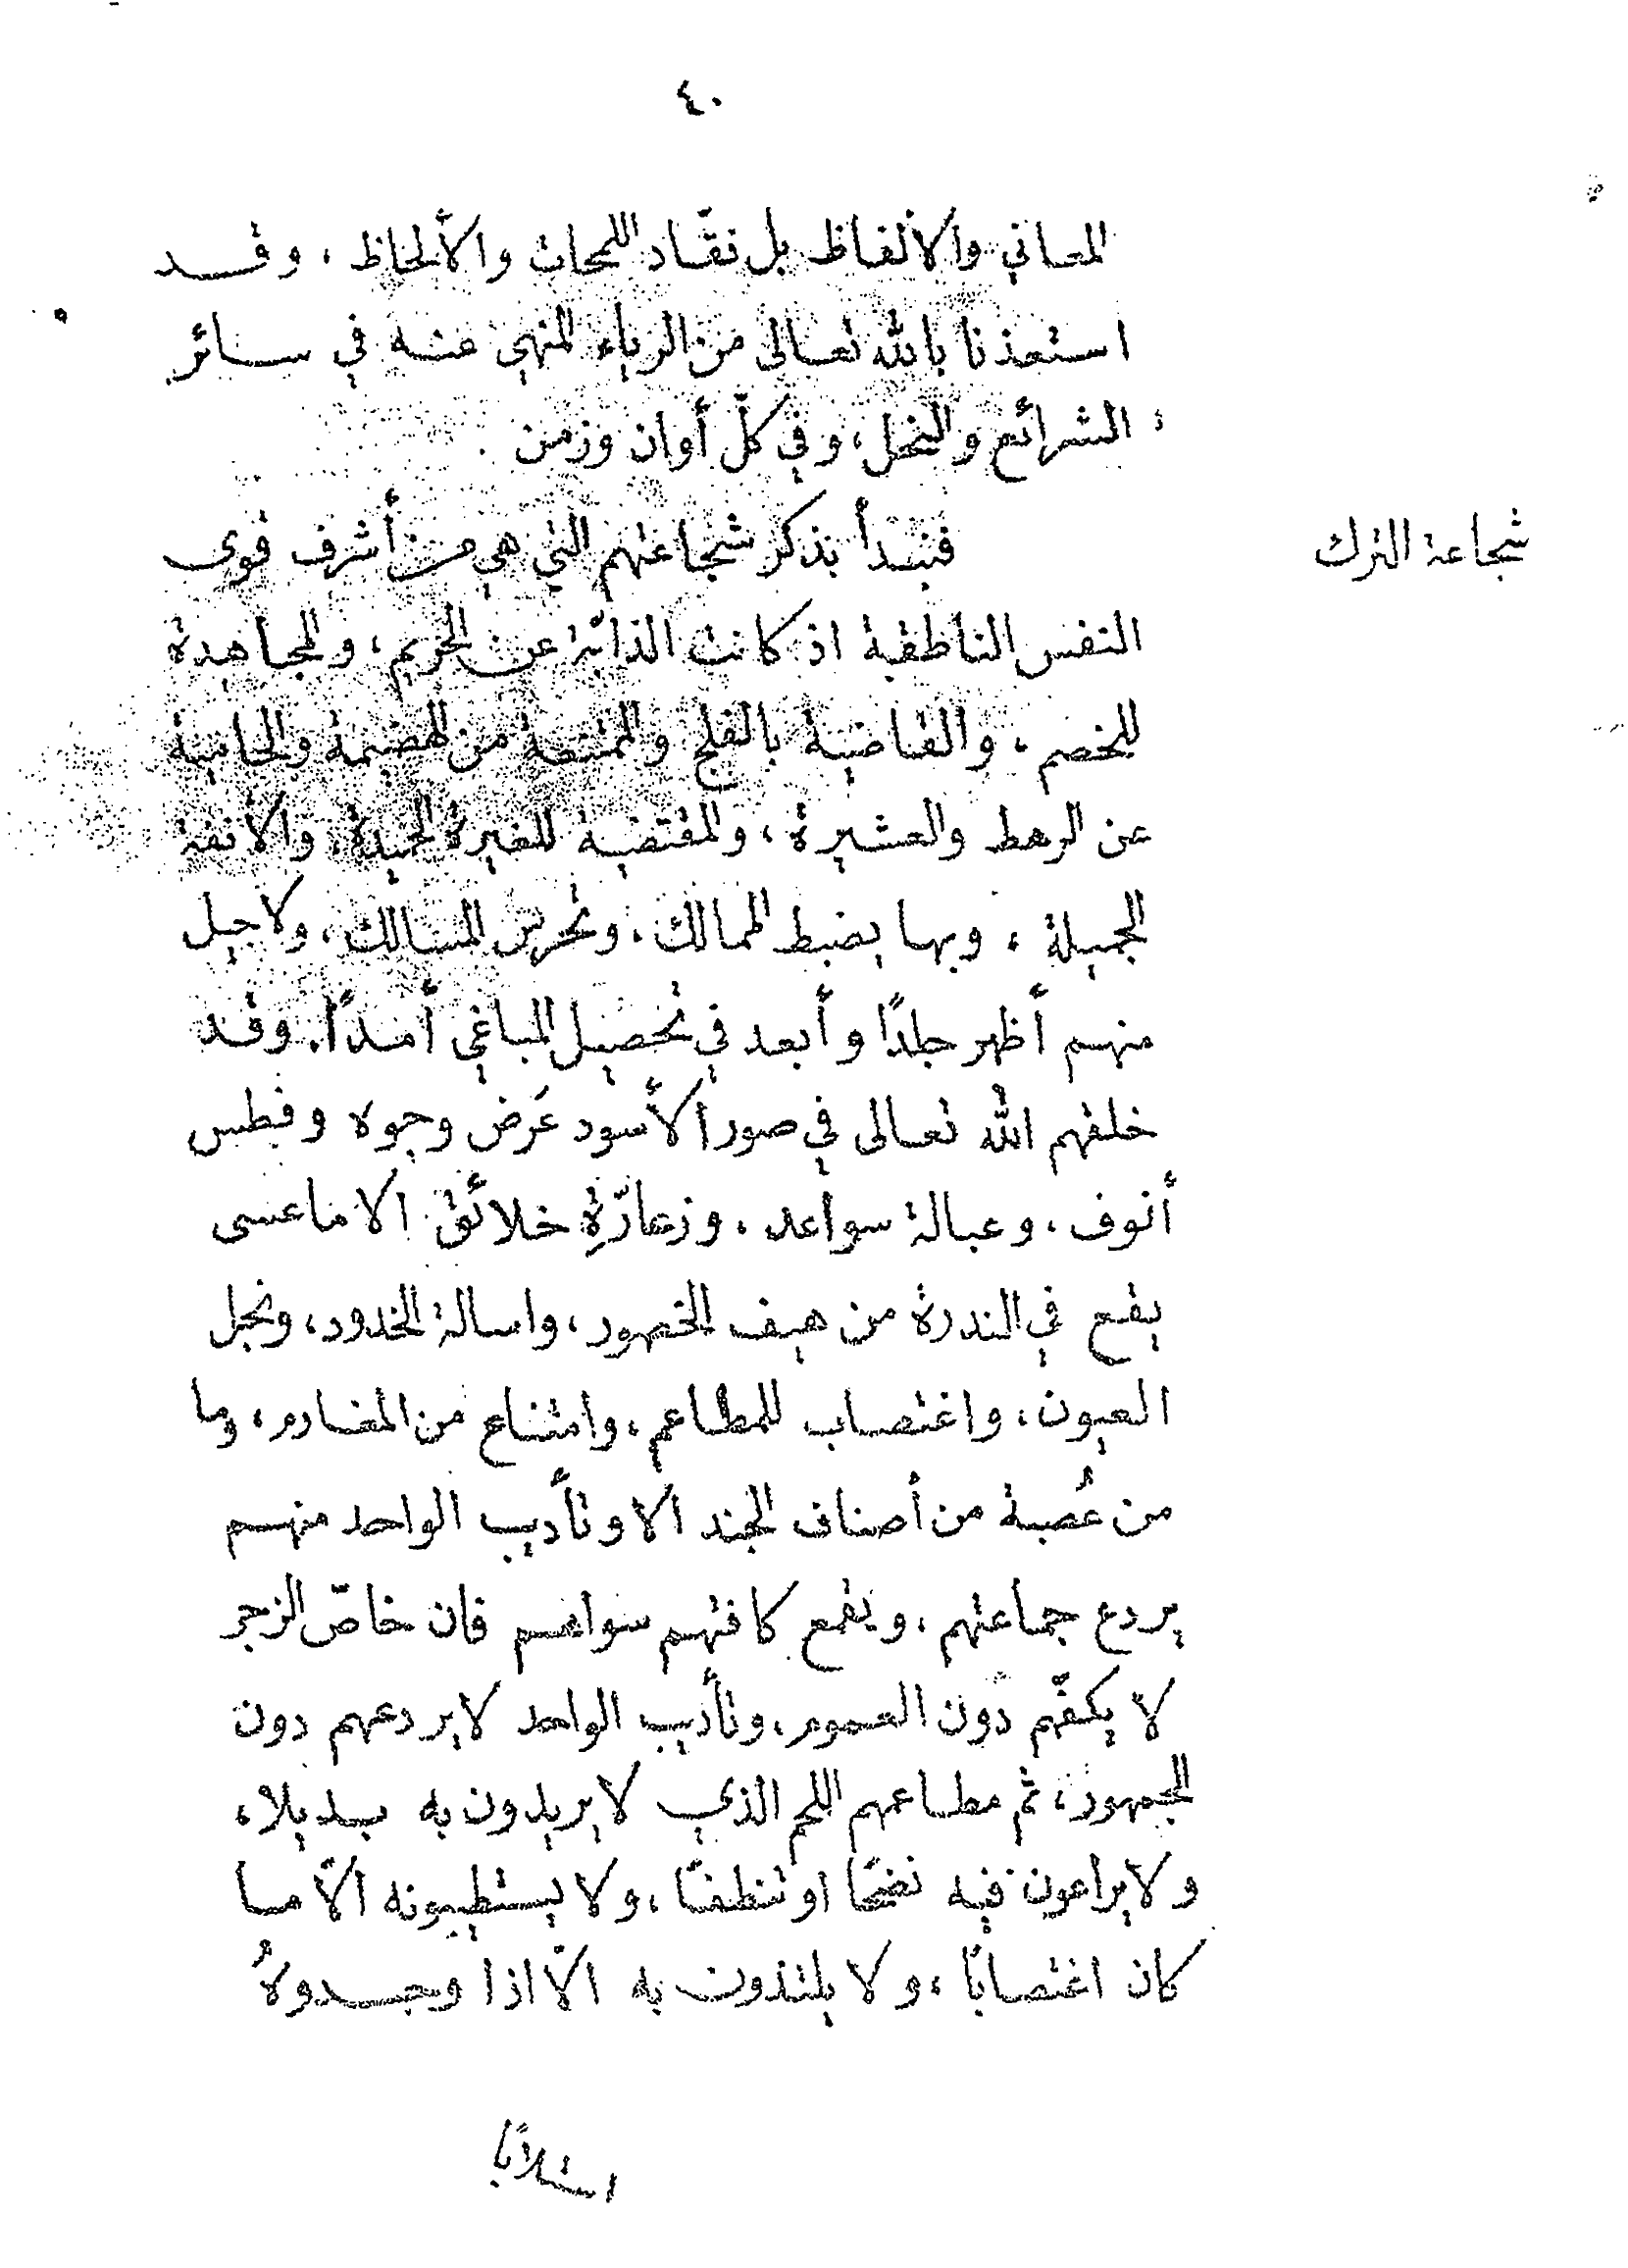 ٤٠
المعاني والألفاظ بل نقّاد اللمحات والألحاظ، وقد
استعذنا بالله تعالى من الرياء المنهي عنه في سائر
الشرائع والنحل، وفي كلّ أوان وزمن
شجاعة الترك
فنبدأ بذكر شجاعتهم التي هي من أشرف قوى
النفس الناطقية اذ كانت الذابّة عن الحريم، والمجاهدة
للخصم، والقاضية بالفلج والممتنعة من الهضيمة والحامية
عن الرهط والعشيرة، والمقتضية للغيرة الحميدة والأنفة
الجميلة، وبها يضبط الممالك، وتحرس المسالك، ولا جيل
منهم أظهر جلدًا وأبعد في تحصيل المباغي أمدًا. وقد
خلقهم الله تعالى في صور الأسود عَرض وجوه وفطس
أنوف، وعبالة سواعد، وزعارّةِ خلائق الا ما عسى
يقع في الندرة من هيف الخصور، واسالة الخدود، ونجل
العيون، واغتصاب للمطاعم، وامتناع من المغارم، وما
من عُصبة من أصناف الجند الا وتأديب الواحد منهم
يردع جماعتهم، ويقمع كافتهم سواهم فان خاصّ الزجر
لا يكفّهم دون العموم، وتأديب الواحد لا يردعهم دون
الجمهور، ثم مطاعمهم اللحم الذي لا يريدون به بديلا،
ولا يراعون فيه نضجًا او تنظفًا، ولا يستطيبونه الاّ ما
كان اغتصابًا، ولا يلتذون به الاّ اذا وجدوهُ
استلابًا